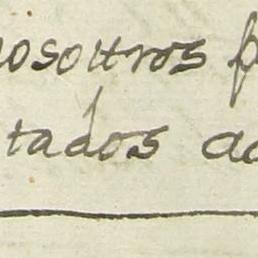 nosoutros p
tados ac